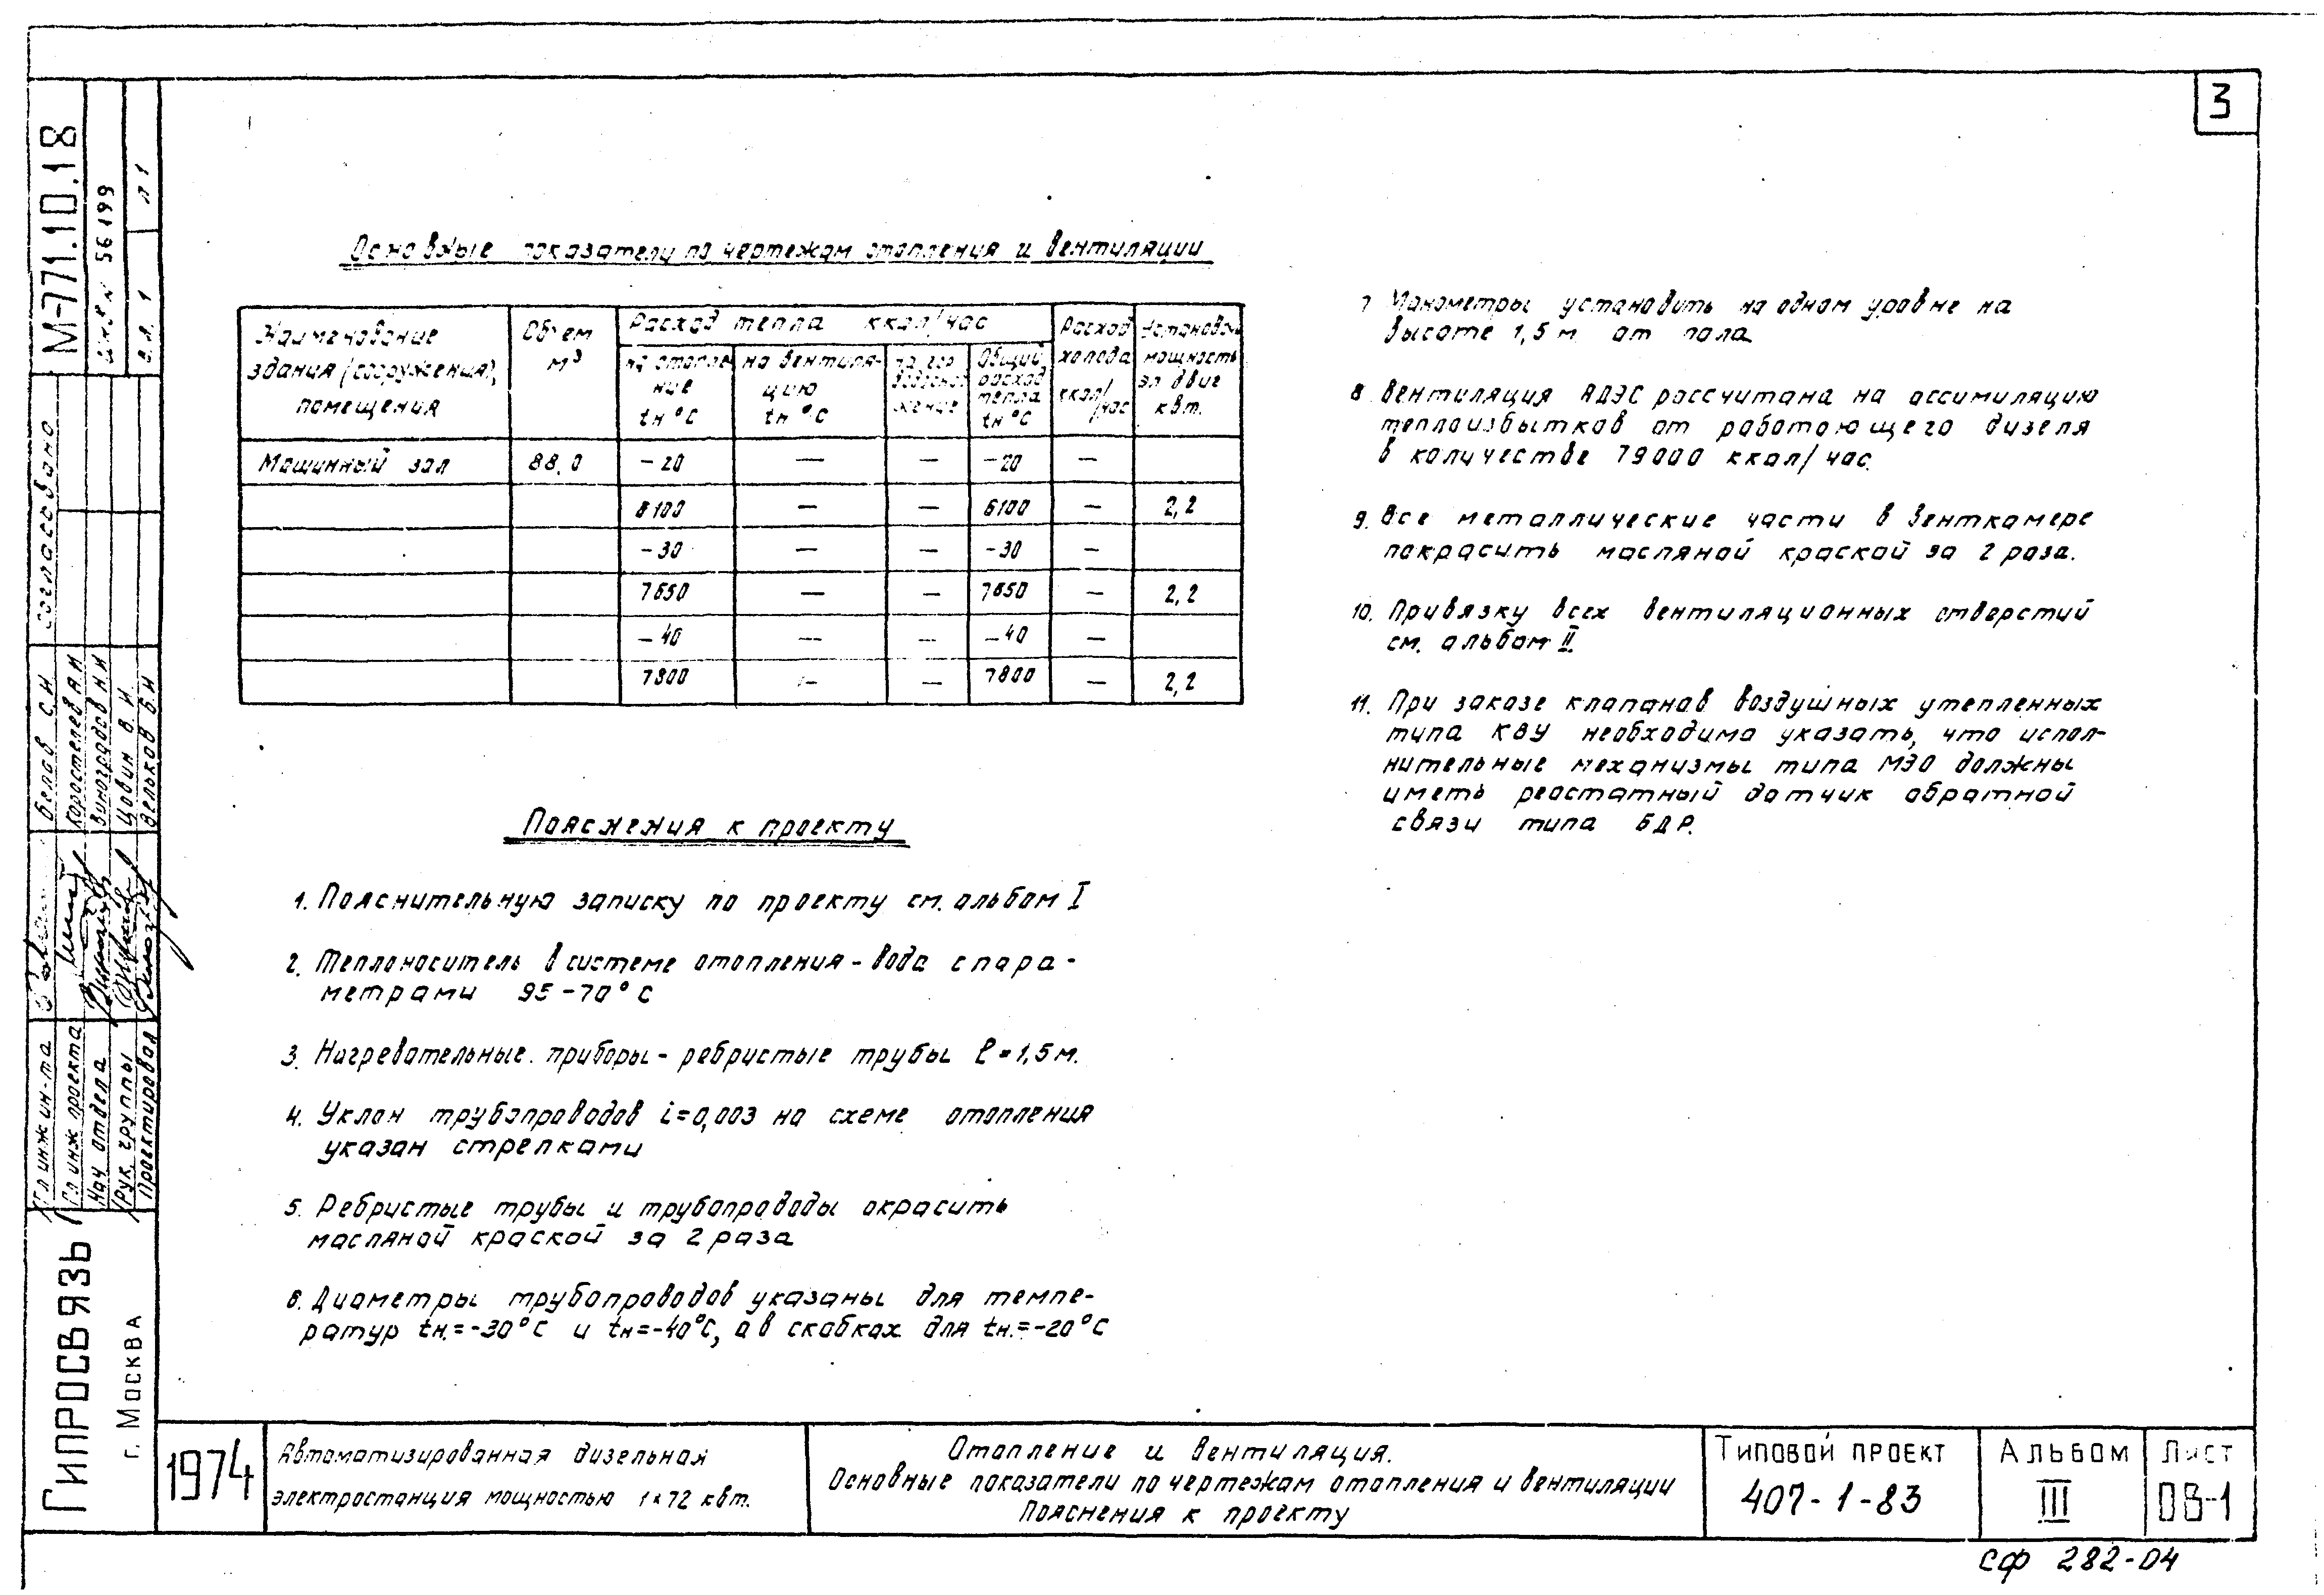 3
М-771.10.18
инв N 56199
в.л. 1
л 1
согласовано
Белов С.И
Коростелев А.И
Виноградов Н.И
Цовин В И
Вельков Б.И
Гл инж ин-та
Гл инж проекта
Нач отдела
Рук. группы
Проектировал
Гипросвязь
г. Москва
Основные показатели по чертежам отопления и вентиляции
Наименование здания (сооружения), помещения
Объем м³
Расход тепла ккал/час
на отопление tн °C
на вентиляцию tн °C
на гор водоснабжение
Общий расход тепла tн °C
Расход холода ккал/час
Установоч мощность эл двиг квт.
Машинный зал 88,0 -20 — — -20 —
6100 — — 6100 — 2,2
-30 — — -30 —
7650 — — 7650 — 2,2
-40 — — -40 —
7800 — — 7800 — 2,2
Пояснения к проекту
1. Пояснительную записку по проекту см. альбом I
2. Теплоноситель в системе отопления - вода с пара-
метрами 95-70°C
3. Нагревательные приборы - ребристые трубы ℓ=1,5м.
4. Уклон трубопроводов i=0,003 на схеме отопления
указан стрелками
5. Ребристые трубы и трубопроводы окрасить
масляной краской за 2 раза
6. Диаметры трубопроводов указаны для темпе-
ратур tн.=-30°C и tн=-40°C, а в скобках для tн.=-20°C
7 Манометры установить на одном уровне на
высоте 1,5м от пола
8 Вентиляция АДЭС рассчитана на ассимиляцию
теплоизбытков от работающего дизеля
в количестве 79000 ккал/час.
9. Все металлические части в венткамере
покрасить масляной краской за 2 раза.
10. Привязку всех вентиляционных отверстий
см. альбом II
11. При заказе клапанов воздушных утепленных
типа КВУ необходимо указать, что испол-
нительные механизмы типа МЭО должны
иметь реостатный датчик обратной
связи типа БДР.
1974
Автоматизированная дизельная
электростанция мощностью 1×72 квт.
Отопление и вентиляция.
Основные показатели по чертежам отопления и вентиляции
Пояснения к проекту
Типовой проект
407-1-83
Альбом
III
Лист
ОВ-1
сф 282-04